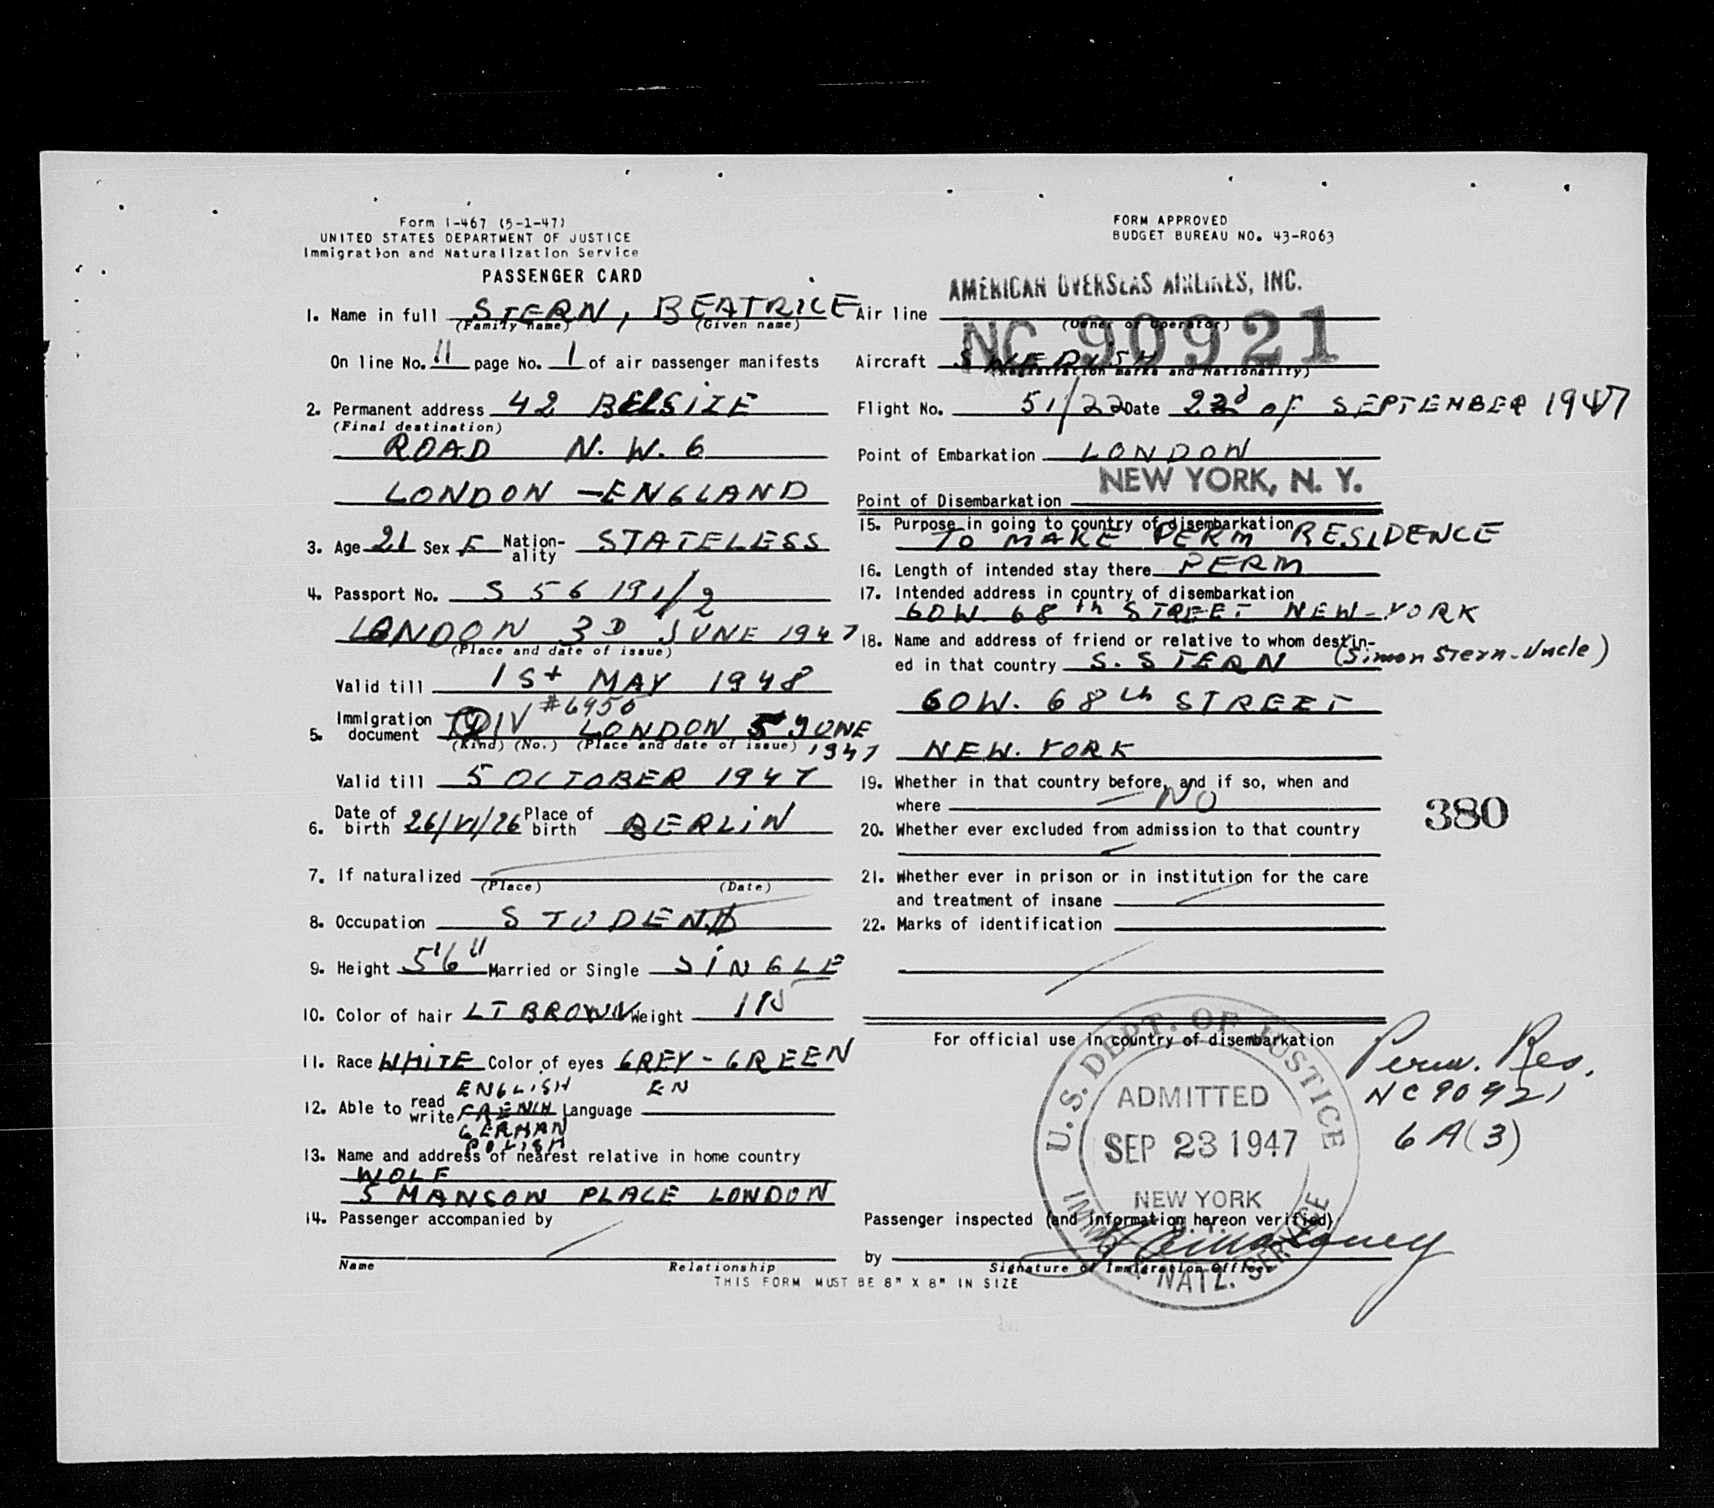 Form I-467 (5-1-47)
UNITED STATES DEPARTMENT OF JUSTICE
Immigration and Naturalization Service
PASSENGER CARD
1. Name in full STERN, BEATRICE
(Family name) (Given name)
On line No. 11 page No. 1 of air passenger manifests
2. Permanent address 42 BELSIZE
(Final destination)
ROAD N. W. 6
LONDON - ENGLAND
3. Age 21 Sex F Nation-ality STATELESS
4. Passport No. S 56 191/2
LONDON 3D JUNE 1947
(Place and date of issue)
Valid till 1st MAY 1948
5. Immigration document QIV #6950 LONDON 5 JUNE 1947
(Kind) (No.) (Place and date of issue)
Valid till 5 OCTOBER 1947
6. Date of birth 26/VI/26 Place of birth BERLIN
7. If naturalized
(Place) (Date)
8. Occupation STUDENT
9. Height 5'6" Married or Single SINGLE
10. Color of hair LT BROWN Weight 115
11. Race WHITE Color of eyes GREY - GREEN
12. Able to read write ENGLISH FRENCH GERMAN POLISH Language EN
13. Name and address of nearest relative in home country
WOLF
5 MANSON PLACE LONDON
14. Passenger accompanied by
Name Relationship
THIS FORM MUST BE 8" X 8" IN SIZE
FORM APPROVED
BUDGET BUREAU NO. 43-R063
AMERICAN OVERSEAS AIRLINES, INC.
Air line
(Owner or operator)
NC 90921
Aircraft SWEDISH
(Registration marks and Nationality)
Flight No. 51/22 Date 22d OF SEPTEMBER 1947
Point of Embarkation LONDON
NEW YORK, N. Y.
Point of Disembarkation
15. Purpose in going to country of disembarkation
TO MAKE PERM RESIDENCE
16. Length of intended stay there PERM
17. Intended address in country of disembarkation
60 W. 68th STREET NEW-YORK
18. Name and address of friend or relative to whom destin-
ed in that country S. STERN (Simon Stern - Uncle)
60 W. 68th STREET
NEW. YORK
19. Whether in that country before, and if so, when and
where - NO
380
20. Whether ever excluded from admission to that country
21. Whether ever in prison or in institution for the care
and treatment of insane
22. Marks of identification
For official use in country of disembarkation
Perm. Res.
NC 90921
6A(3)
U.S. DEPT. OF JUSTICE
ADMITTED
SEP 23 1947
NEW YORK
IMMIG. & NATZ. SERVICE
Passenger inspected (and information hereon verified)
by
Signature of Immigration Officer